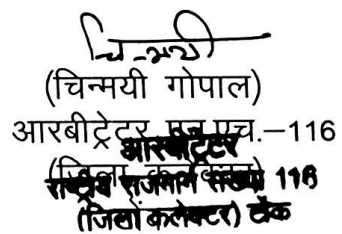 चिन्मयी
(चिन्मयी गोपाल)
आरबीट्रेटर एन.एच.–116
आरबीट्रेटर
राष्ट्रीय राजमार्ग संख्या 116
(जिला कलेक्टर) टोंक